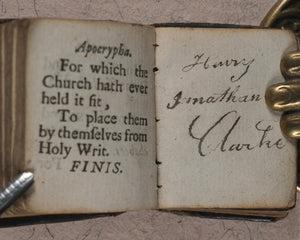 Apocrypha.
For which the
Church hath ever
held it fit,
To place them
by themselves from
Holy Writ.
FINIS.
Harry
Jonathan
Clarke